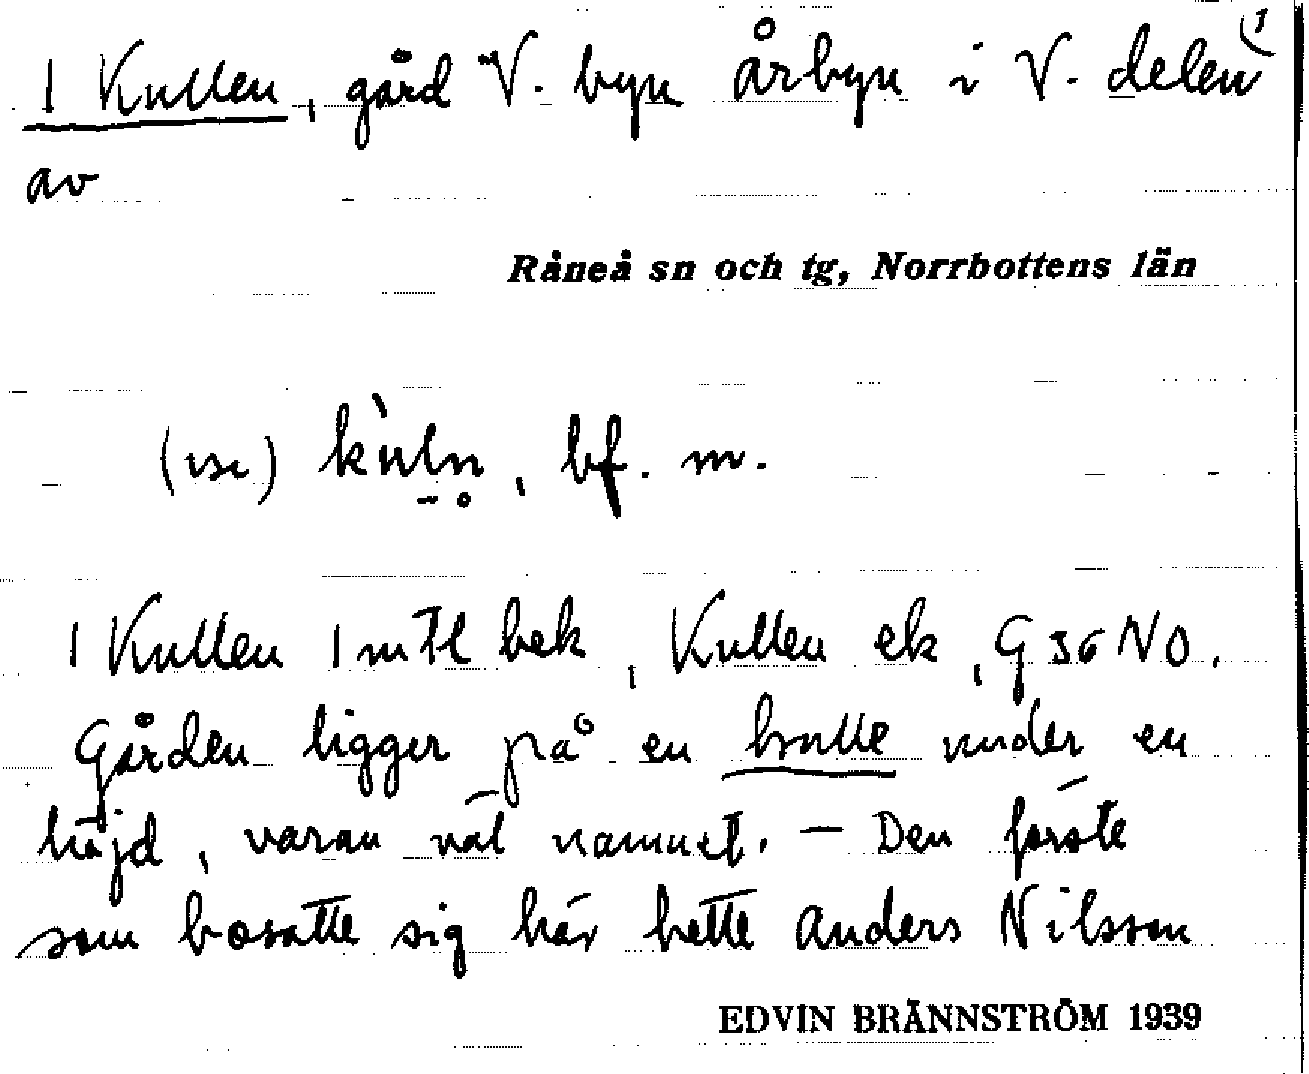 (1
1 Kullen, gård V. byn Årbyn i V. delen
av
Råneå sn och tg, Norrbottens län
kùln̥, bf. m.
1 Kullen 1 mtl bek, Kullen ek, G 36 NO.
Gården ligger på en bulle under en
höjd, varav väl namnet. — Den förste
som bosatte sig här hette Anders Nilsson
EDVIN BRÄNNSTRÖM 1939